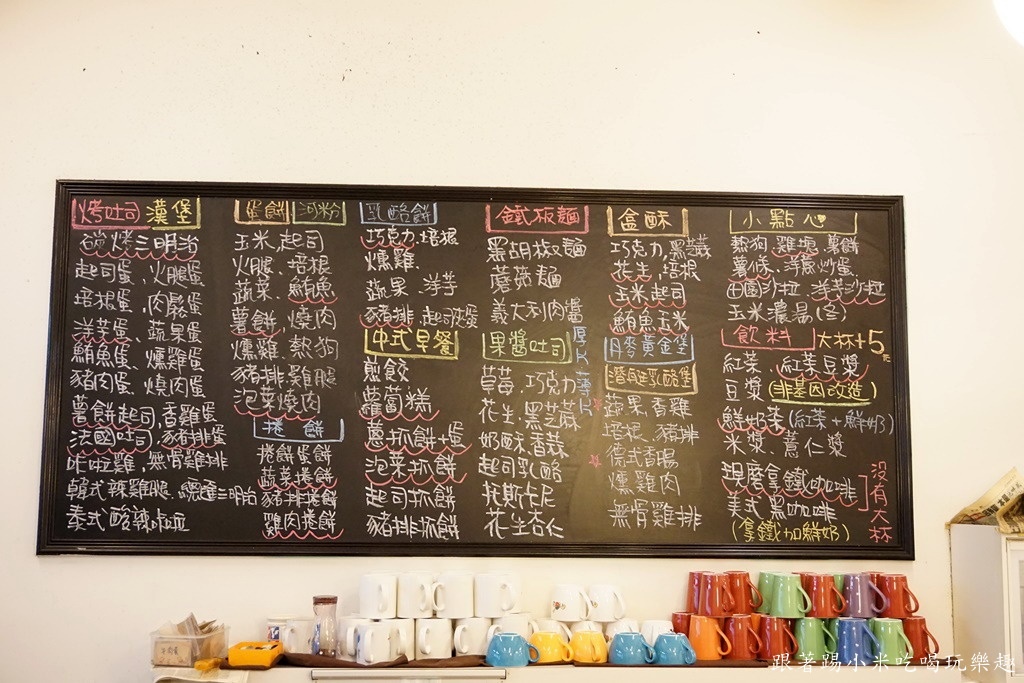 烤吐司 漢堡
碳烤三明治
起司蛋、火腿蛋
培根蛋、肉鬆蛋
洋芋蛋、蔬果蛋
鮪魚蛋、燻雞蛋
豬肉蛋、燒肉蛋
薯餅起司,香雞蛋
法國吐司,豬排蛋
咔啦雞,無骨雞排
韓式辣雞腿、總匯三明治
泰式酸辣
蛋餅 河粉
玉米,起司
火腿、培根
蔬菜、鮪魚
薯餅,燒肉
燻雞、熱狗
豬排、雞腿
泡菜燒肉
捲餅
捲餅蛋餅
蔬菜捲餅
豬排捲餅
雞肉捲餅
乳酪餅
巧克力、培根
燻雞、
蔬果、洋芋
豬排、起司蛋
中式早餐
煎餃
蘿蔔糕
蔥抓餅+蛋
泡菜抓餅
起司抓餅
豬排抓餅
鐵板麵
黑胡椒麵
蘑菇麵
義大利肉醬
果醬吐司
厚片 薄片
草莓、巧克力
花生、黑芝麻
奶酥、香蒜
起司乳酪
托斯卡尼
花生杏仁
盒酥
巧克力,黑芝麻
花生、培根
玉米起司
鮪魚玉米
丹麥黃金堡
潛艇乳酪堡
蔬果、香雞
培根、豬排
德式香腸
燻雞肉
無骨雞排
小點心
熱狗、雞塊、薯餅
薯條、洋蔥炒蛋
田園沙拉、洋芋沙拉
玉米濃湯(冬)
飲料 大杯+5元
紅茶、紅茶豆漿
豆漿(非基因改造)
鮮奶茶(紅茶+鮮奶)
米漿、薏仁漿
現磨拿鐵咖啡
美式黑咖啡
(拿鐵加鮮奶)
沒有大杯
跟著踢小米吃喝玩樂趣